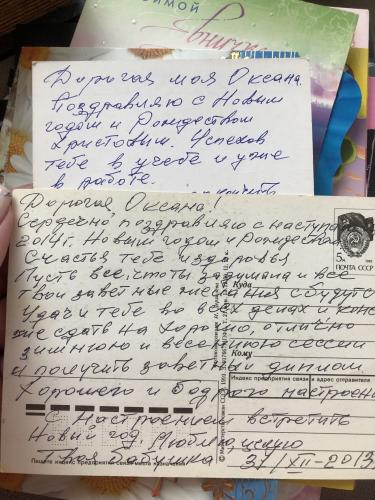 зимой
Дорогая моя Оксана.
Поздравляю с Новым
годом и Рождеством
Христовым. Успехов
тебе в учебе и уже
в работе.
Дорогая Оксана!
Сердечно поздравляю с наступа
2014г. Новым годом и Рождеством
Счастья тебе и здоровья
Пусть все, что ты задумала и все
твои заветные желания сбудутся
Удачи тебе во всех делах и
сдать на хорошо, отлично
зимнюю и весеннюю сессии
и получить заветный диплом
Хорошего и бодрого настроения
С Настроением встретить
Новый год Люблю, целую
Твоя бабушка 31/XII-2013
5к
ПОЧТА СССР
Куда
Кому
Индекс предприятия связи и адрес отправителя
Пишите индекс предприятия связи места назначения